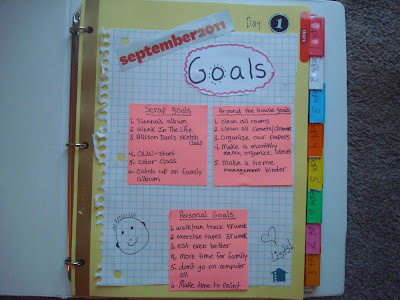 september2011
Day 1
Goals
Scrap goals
1. Sienna's album
2. Week In The Life
3. Allison Davis sketch class
4. OLW-start
5. Color class
6. Catch up on family album
Around the house goals
1. Clean all rooms
2. Clean all closets/drawers
3. Organize our papers
4. Make a monthly menu, organize ideas
5. Make a home management binder
Personal Goals
1. walk/run track 5x week
2. exercise tapes 3x week
3. eat even better
4. more time for family
5. don't go on computer all
6. Make time to paint
I ♡ Lists!